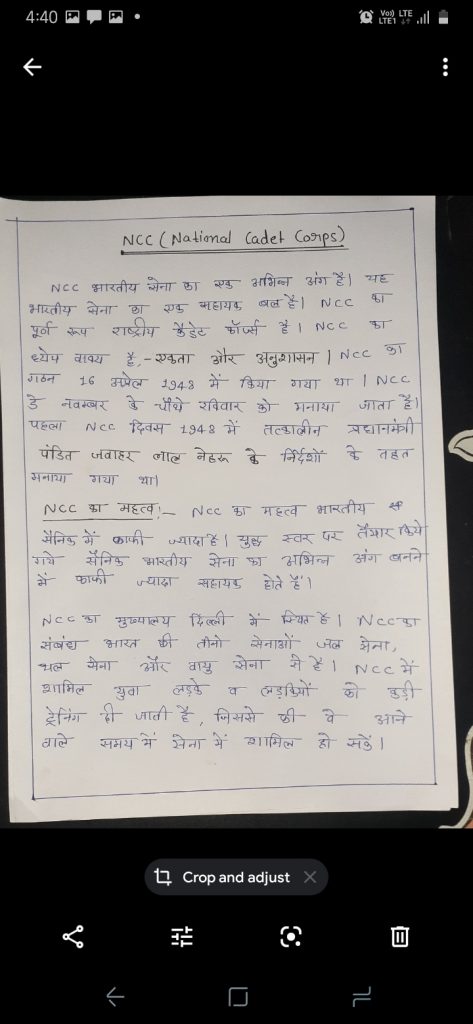 4:40
Vo) LTE
LTE1
NCC (National Cadet Corps)
NCC भारतीय सेना का एक अभिन्न अंग है। यह
भारतीय सेना का एक सहायक बल है। NCC का
पूर्ण रूप राष्ट्रीय कैडेट कॉर्प्स है। NCC का
ध्येय वाक्य है,- एकता और अनुशासन। NCC का
गठन 16 अप्रेल 1948 में किया गया था। NCC
डे नवम्बर के चौथे रविवार को मनाया जाता है।
पहला NCC दिवस 1948 में तत्कालीन प्रधानमंत्री
पंडित जवाहर लाल नेहरू के निर्देशों के तहत
मनाया गया था।
NCC का महत्व:- NCC का महत्व भारतीय
सैनिक में काफी ज्यादा है। युद्ध स्तर पर तैयार किये
गये सैनिक भारतीय सेना का अभिन्न अंग बनने
में काफी ज्यादा सहायक होते हैं।
NCC का मुख्यालय दिल्ली में स्थित है। NCC का
संबंध भारत की तीनो सेनाओं जल सेना,
थल सेना और वायु सेना से है। NCC में
शामिल युवा लड़के व लड़कियों को कड़ी
ट्रेनिंग दी जाती है, जिससे की वे आने
वाले समय में सेना में शामिल हो सकें।
Crop and adjust